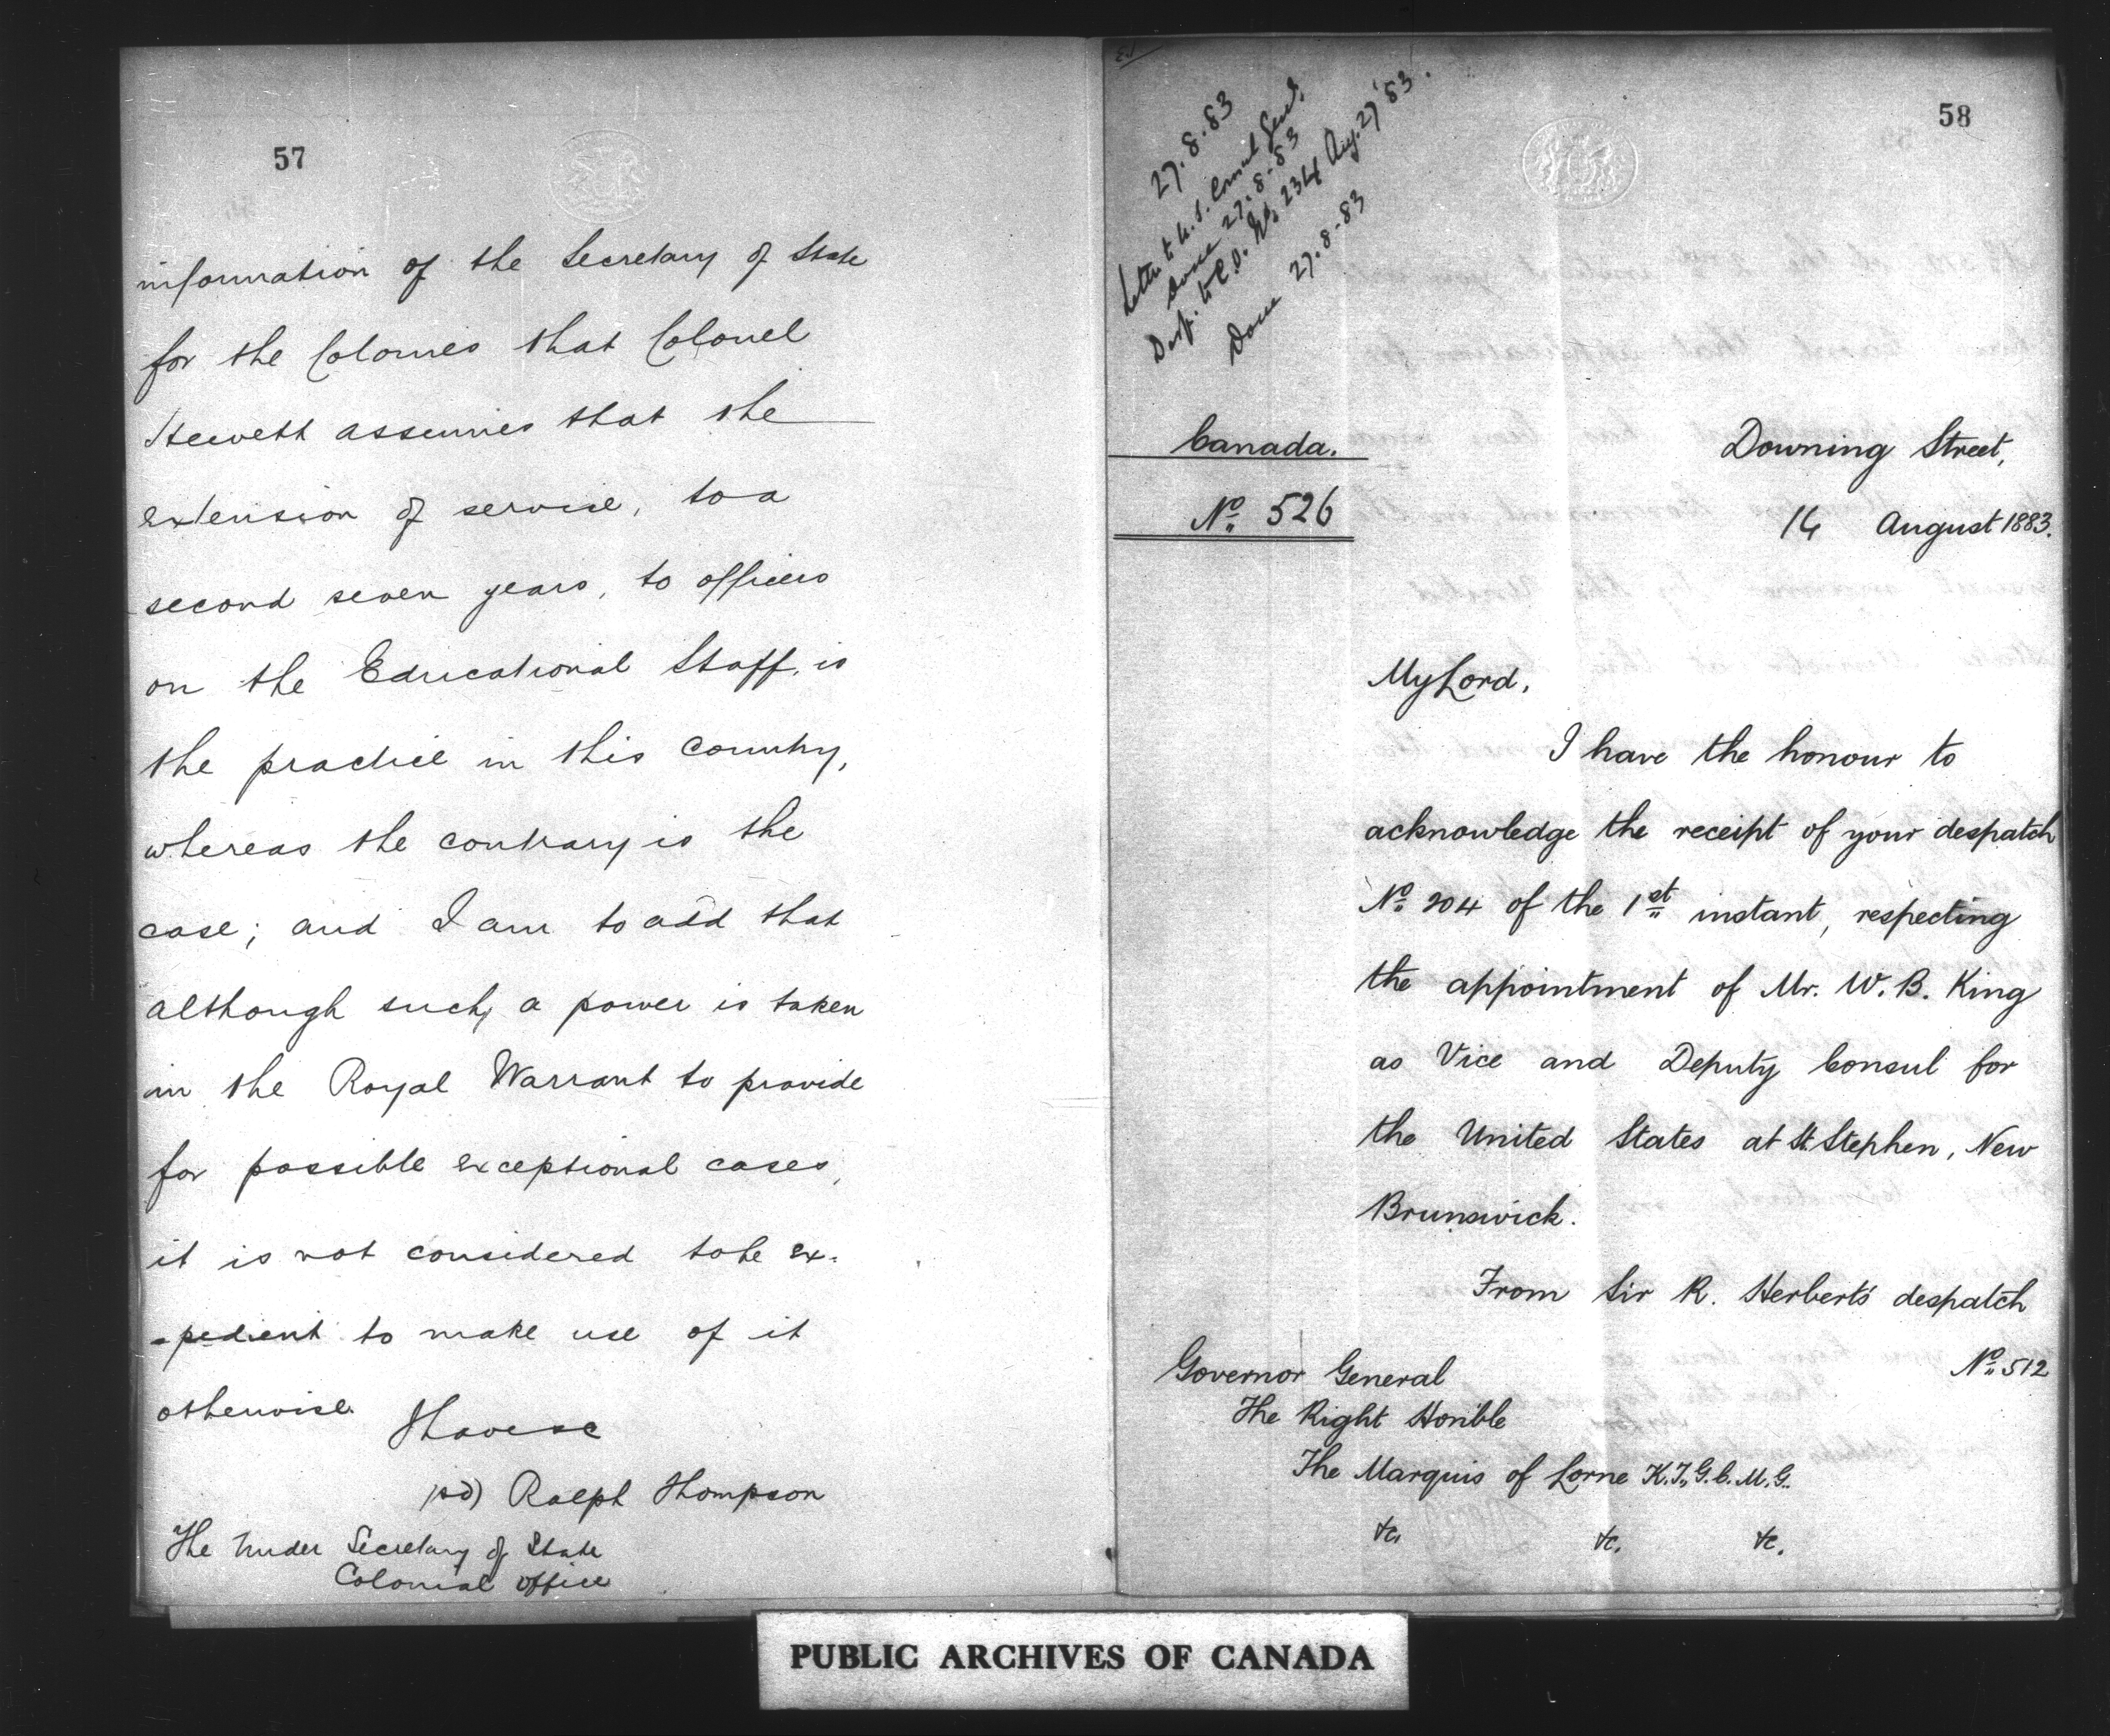 57
information of the Secretary of State
for the Colonies that Colonel
Hewett assumes that the
extension of service, to a
second seven years, to officers
on the Educational Staff, is
the practice in this country,
whereas the contrary is the
case; and I am to add that
although such a power is taken
in the Royal Warrant to provide
for possible exceptional cases,
it is not considered to be ex-
-pedient to make use of it
otherwise.
I have &c
(sd) Ralph Thompson
The Under Secretary of State
Colonial Office
58
27.8.83
Letter to U.S. Consul Genl.
Done 27.8.83
Desp. to C.O. No. 234 Aug. 27 '83.
Done 27.8.83
Canada.
No. 526
Downing Street,
14 August 1883.
My Lord,
I have the honour to
acknowledge the receipt of your despatch
No. 204 of the 1st instant, respecting
the appointment of Mr. W. B. King
as Vice and Deputy Consul for
the United States at St. Stephen, New
Brunswick.
From Sir R. Herbert's despatch
No. 512
Governor General
The Right Honble
The Marquis of Lorne K.T., G.C.M.G.
&c. &c. &c.
PUBLIC ARCHIVES OF CANADA